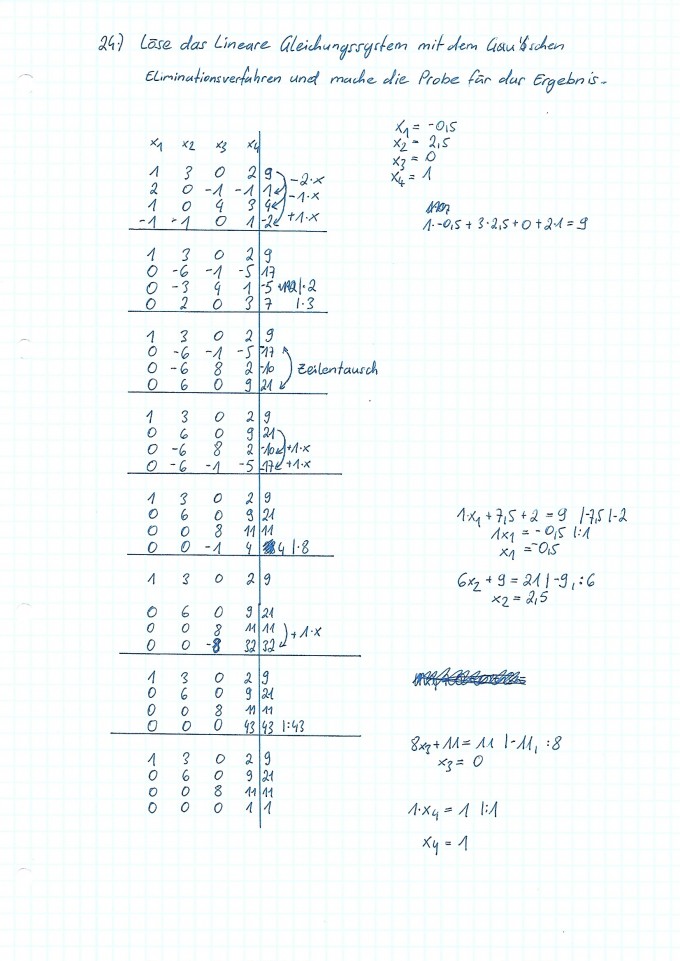 24.) Löse das Lineare Gleichungssystem mit dem Gauß'schen
Eliminationsverfahren und mache die Probe für das Ergebnis.
x1 x2 x3 x4
1 3 0 2 | 9
2 0 -1 -1 | 1 -2·x
1 0 4 3 | 4 -1·x
-1 -1 0 1 | -2 +1·x
1 3 0 2 | 9
0 -6 -1 -5 | 17
0 -3 4 1 | -5 |·2
0 2 0 3 | 7 |·3
1 3 0 2 | 9
0 -6 -1 -5 | -17
0 -6 8 2 | -10 Zeilentausch
0 6 0 9 | 21
1 3 0 2 | 9
0 6 0 9 | 21
0 -6 8 2 | -10 +1·x
0 -6 -1 -5 | -17 +1·x
1 3 0 2 | 9
0 6 0 9 | 21
0 0 8 11 | 11
0 0 -1 4 | 4 |·8
1 3 0 2 | 9
0 6 0 9 | 21
0 0 8 11 | 11 +1·x
0 0 -8 32 | 32
1 3 0 2 | 9
0 6 0 9 | 21
0 0 8 11 | 11
0 0 0 43 | 43 |:43
1 3 0 2 | 9
0 6 0 9 | 21
0 0 8 11 | 11
0 0 0 1 | 1
x1 = -0,5
x2 = 2,5
x3 = 0
x4 = 1
1·-0,5 + 3·2,5 + 0 + 2·1 = 9
1·x1 + 7,5 + 2 = 9 |-7,5 |-2
1x1 = -0,5 |:1
x1 = -0,5
6x2 + 9 = 21 |-9, :6
x2 = 2,5
8x3 + 11 = 11 |-11, :8
x3 = 0
1·x4 = 1 |:1
x4 = 1